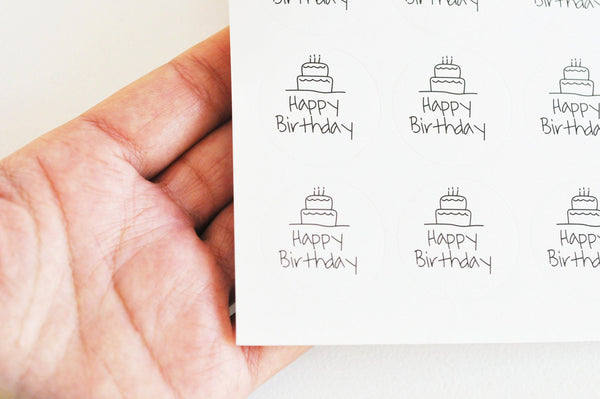 Birthday
Birthday
Happy
Birthday
Happy
Birthday
Happy
Birthday
Happy
Birthday
Happy
Birthday
Happy
Birthday